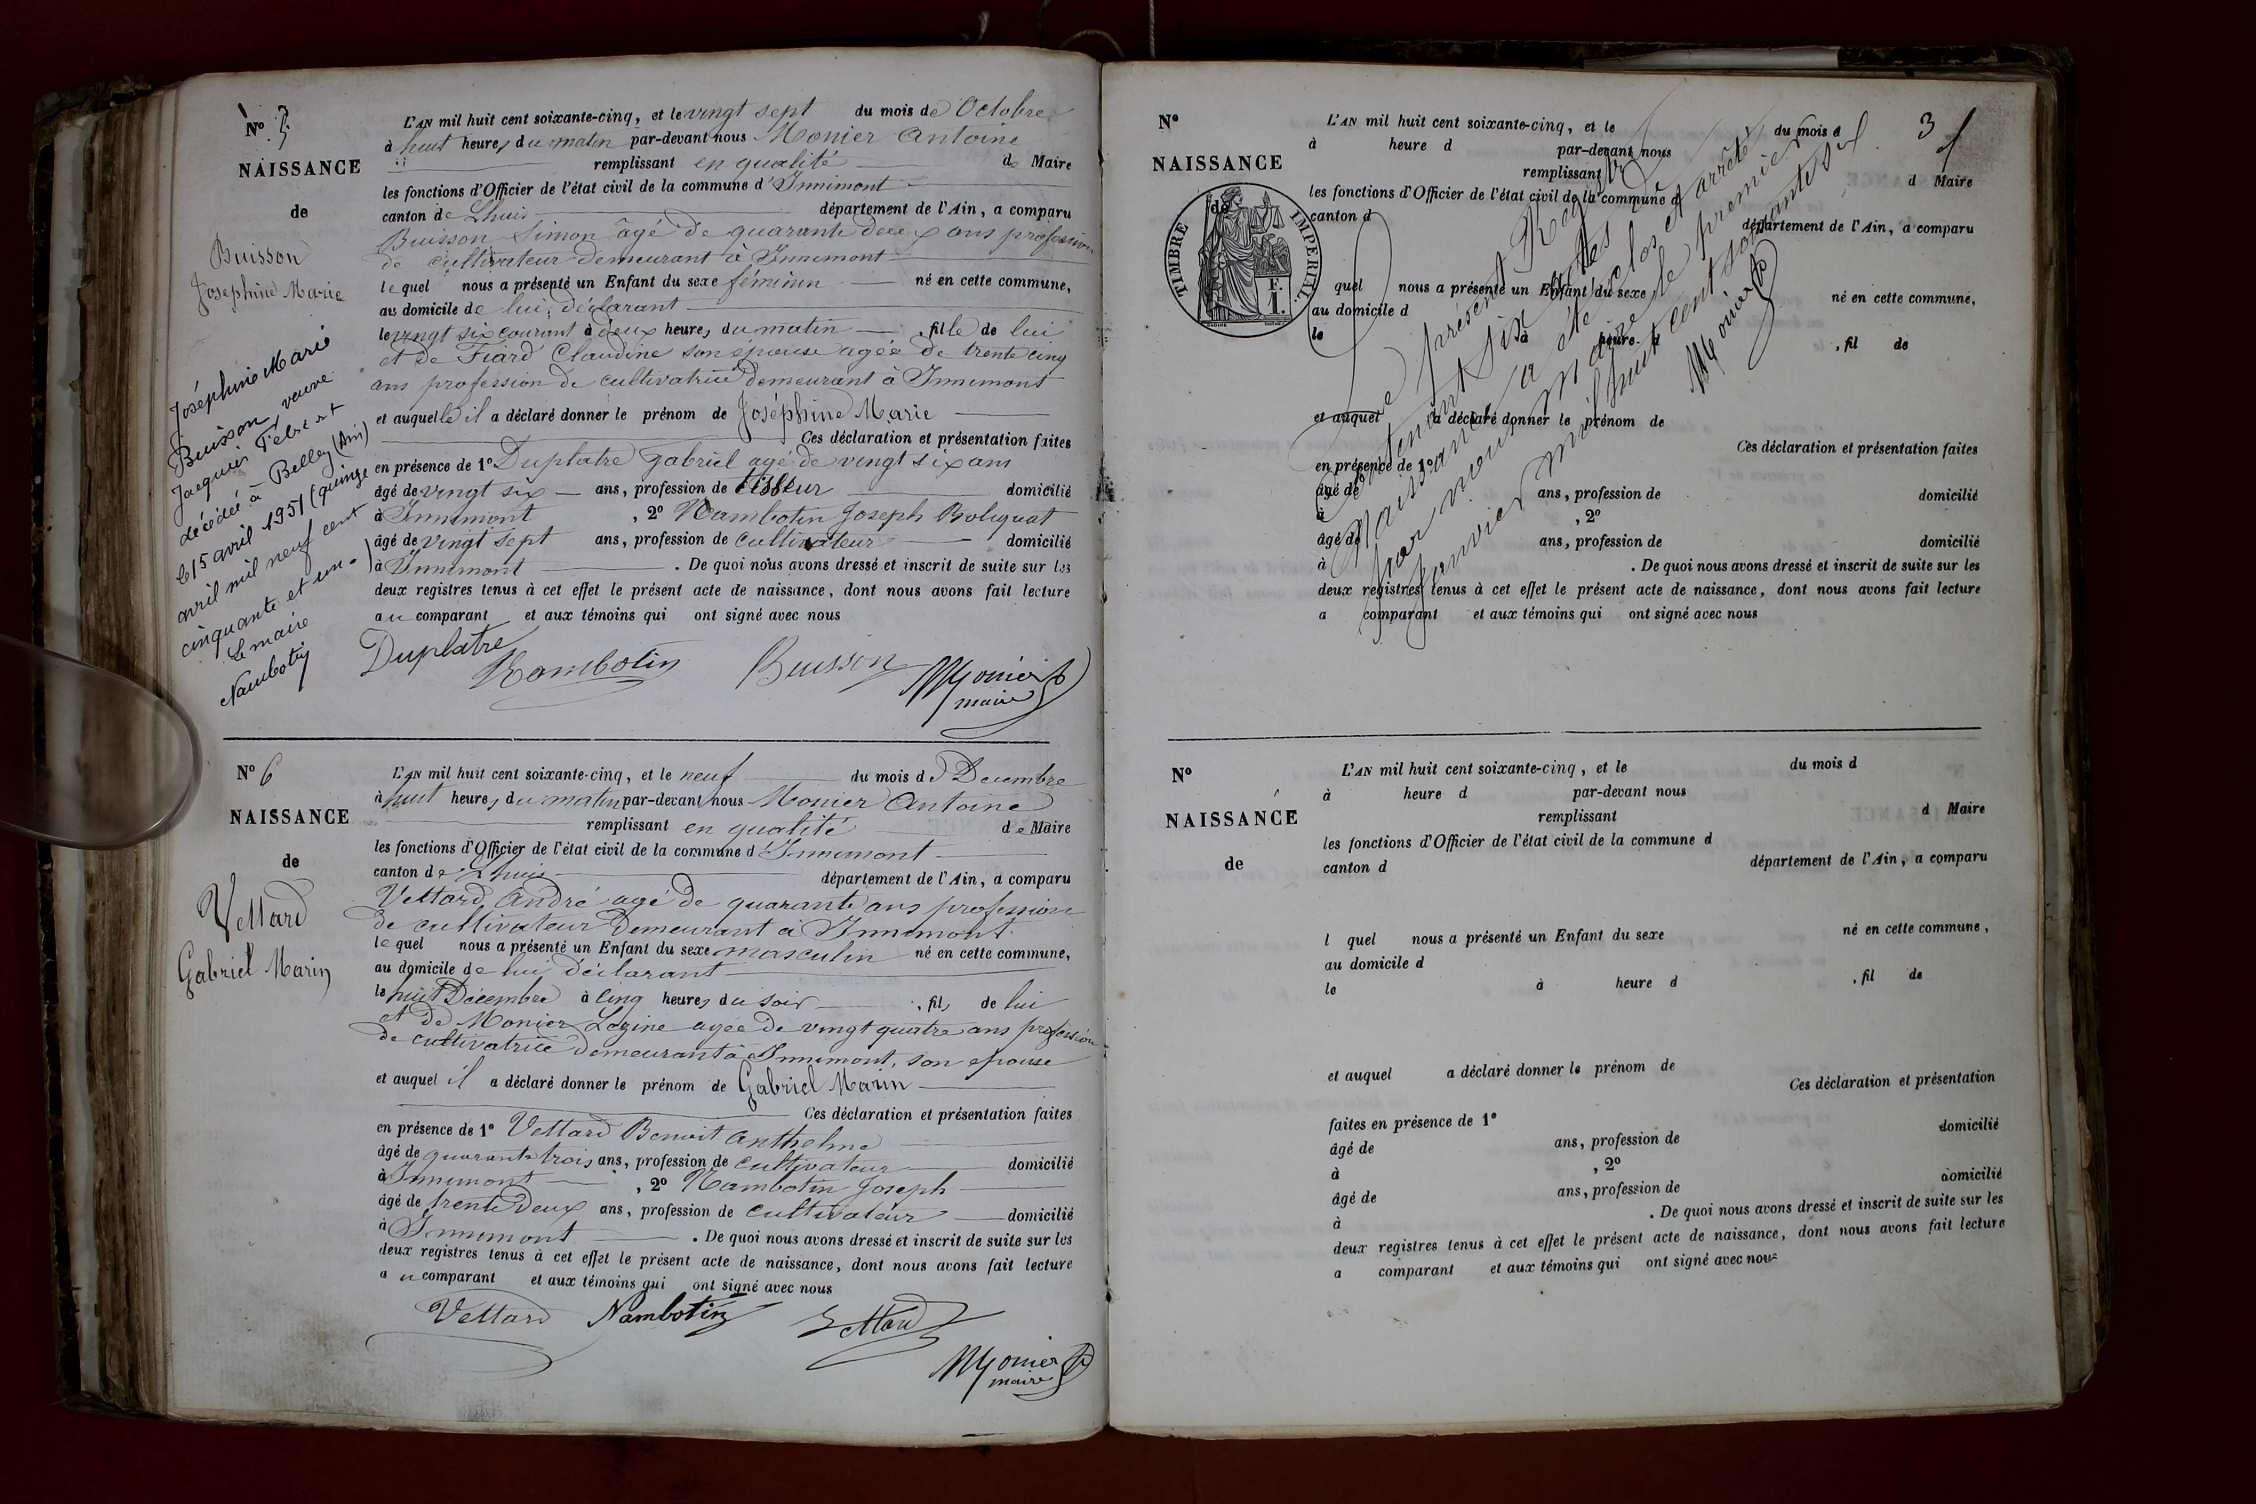 N° 5
NAISSANCE
de
Buisson
Joséphine Marie
Joséphine Marie
Buisson, veuve
Jacquin Fébre et
décédée à Belley (Ain)
le 15 avril 1951 (quinze
avril mil neuf cent
cinquante et un.)
Le maire
Nambotin
L'AN mil huit cent soixante-cinq, et le vingt sept du mois de Octobre
à huit heures du matin par-devant nous Monier Antoine
remplissant en qualité de Maire
les fonctions d'Officier de l'état civil de la commune d'Innimont
canton de Lhuis département de l'Ain, a comparu
Buisson Simon âgé de quarante deux ans profession
de cultivateur demeurant à Innimont
lequel nous a présenté un Enfant du sexe féminin né en cette commune,
au domicile de lui, déclarant
le vingt six courant à deux heures du matin, fille de lui
et de Fiard Claudine son épouse agée de trente cinq
ans profession de cultivatrice demeurant à Innimont
et auquelle il a déclaré donner le prénom de Joséphine Marie
Ces déclaration et présentation faites
en présence de 1° Duplatre Gabriel agé de vingt six ans
âgé de vingt six ans, profession de tisseur domicilié
à Innimont, 2° Nambotin Joseph
âgé de vingt sept ans, profession de cultivateur domicilié
à Innimont. De quoi nous avons dressé et inscrit de suite sur les
deux registres tenus à cet effet le présent acte de naissance, dont nous avons fait lecture
au comparant et aux témoins qui ont signé avec nous
Duplatre Nambotin Buisson Monier
maire
N° 6
NAISSANCE
de
Vettard
Gabriel Marin
L'AN mil huit cent soixante-cinq, et le neuf du mois de Decembre
à huit heures du matin par-devant nous Monier Antoine
remplissant en qualité de Maire
les fonctions d'Officier de l'état civil de la commune d'Innimont
canton de Lhuis département de l'Ain, a comparu
Vettard André agé de quarante ans profession
de cultivateur demeurant à Innimont
lequel nous a présenté un Enfant du sexe masculin né en cette commune,
au domicile de lui déclarant
le huit Décembre à cinq heures du soir, fils de lui
et de Monier Lozine agée de vingt quatre ans profession
de cultivatrice demeurant à Innimont, son epouse
et auquel il a déclaré donner le prénom de Gabriel Marin
Ces déclaration et présentation faites
en présence de 1° Vettard Benoit Anthelme
âgé de quarante trois ans, profession de cultivateur domicilié
à Innimont, 2° Nambotin Joseph
âgé de trente deux ans, profession de cultivateur domicilié
à Innimont. De quoi nous avons dressé et inscrit de suite sur les
deux registres tenus à cet effet le présent acte de naissance, dont nous avons fait lecture
au comparant et aux témoins qui ont signé avec nous
Vettard Nambotin Vettard
Monier
maire
3
N°
NAISSANCE
de
TIMBRE IMPERIAL
F.
1.
L'AN mil huit cent soixante-cinq, et le du mois d
à heure d par-devant nous
remplissant d Maire
les fonctions d'Officier de l'état civil de la commune d
canton d département de l'Ain, a comparu
quel nous a présenté un Enfant du sexe né en cette commune,
au domicile d
le à heure d, fil de
et auquel a déclaré donner le prénom de
Ces déclaration et présentation faites
en présence de 1°
âgé de ans, profession de domicilié
à, 2°
âgé de ans, profession de domicilié
à. De quoi nous avons dressé et inscrit de suite sur les
deux registres tenus à cet effet le présent acte de naissance, dont nous avons fait lecture
a comparant et aux témoins qui ont signé avec nous
Le présent Registre
Contenant six actes de
Naissance a été clos et arrêté
par nous maire le premier
Janvier mil huit cent soixante six
Monier
N°
NAISSANCE
de
L'AN mil huit cent soixante-cinq, et le du mois d
à heure d par-devant nous
remplissant d Maire
les fonctions d'Officier de l'état civil de la commune d
canton d département de l'Ain, a comparu
l quel nous a présenté un Enfant du sexe né en cette commune,
au domicile d
le à heure d, fil de
et auquel a déclaré donner le prénom de
Ces déclaration et présentation
faites en présence de 1°
âgé de ans, profession de domicilié
à, 2°
âgé de ans, profession de domicilié
à. De quoi nous avons dressé et inscrit de suite sur les
deux registres tenus à cet effet le présent acte de naissance, dont nous avons fait lecture
a comparant et aux témoins qui ont signé avec nous